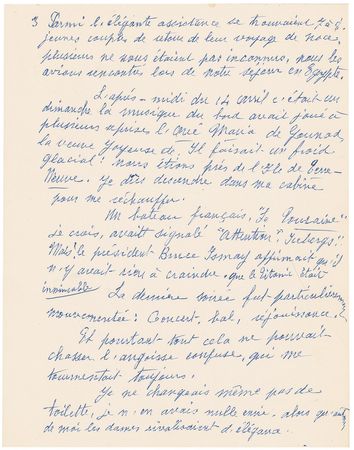 3 Parmi l'élégante assistance se trouvaient 7 à 8
jeunes couples de retour de leur voyage de noce,
plusieurs ne nous étaient pas inconnus, nous les
avions rencontrés lors de notre séjour en Egypte.
L'après-midi du 14 avril c'était un
dimanche la musique du bord avait joué à
plusieurs reprises l'Avé Maria de Gounod,
la veuve Joyeuse etc. Il faisait un froid
glacial! nous étions près de l'Ile de Terre-
Neuve. Je dûs descendre dans ma cabine
pour me réchauffer.
Un bateau français, "La Touraine"
je crois, avait signalé "Attention! Icebergs!"
Mais le président Bruce Ismay affirmait qu'il
n'y avait rien à craindre, que le Titanic était
insubmersible
La dernière soirée fut particulièrement
mouvementée: Concert, bal, réjouissance.
Et pourtant tout cela ne pouvait
chasser l'angoisse confuse, qui me
tourmentait toujours.
Je ne changeais même pas de
toilette, je n'en avais nulle envie, alors qu'autour
de moi les dames rivalisaient d'élégance.